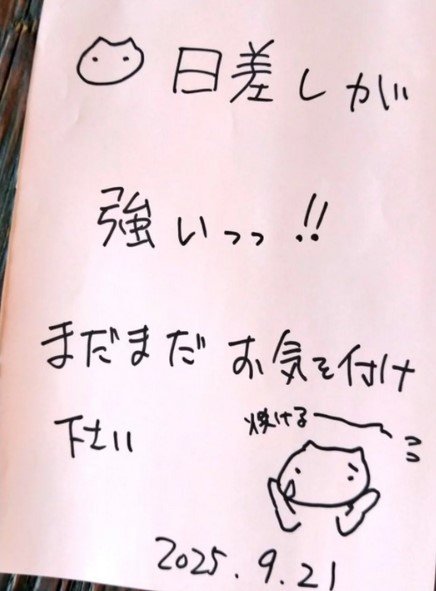 日差しが
強いっっ!!
まだまだ お気を付け
下さい
焼ける〜
2025.9.21